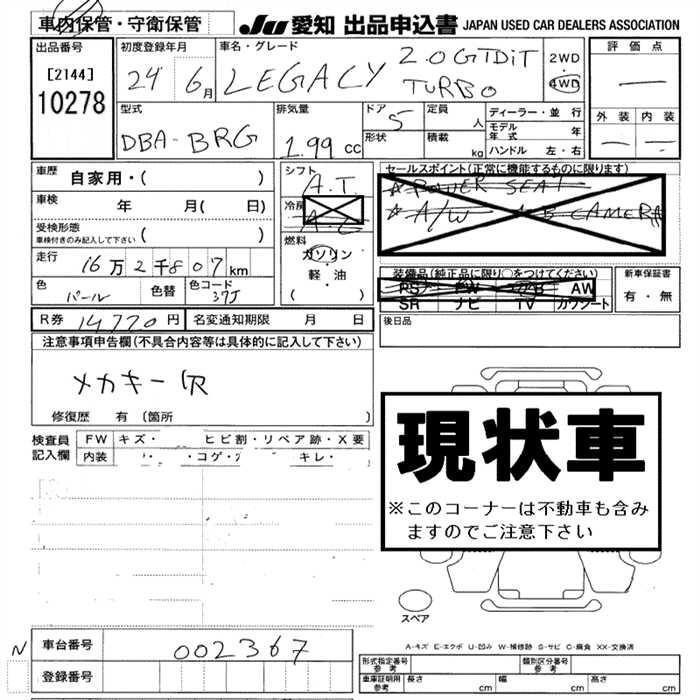 車内保管・守衛保管 JU 愛知 出品申込書 JAPAN USED CAR DEALERS ASSOCIATION
出品番号 初度登録年月 車名・グレード 評価点
[2144] 24 6月 LEGACY 2.0GTDiT TURBO 2WD・4WD
10278
型式 排気量 ドア 定員 ディーラー・並行 外装 内装
DBA-BRG 1.99cc 5 人 モデル年式 年
形状 積載 kg ハンドル 左・右
車歴 自家用・( ) シフト A.T. セールスポイント(正常に機能するものに限ります)
車検 年 月( 日) 冷房 A.C ☆POWER SEAT
☆A/W ☆B CAMERA
受検形態 ( )
車検付きのみ記入して下さい
燃料 ガソリン・軽・油 ( )
走行 16万2千807km
装備品(純正品に限り○をつけてください) 新車保証書
PS PW AW 有・無
SR ナビ TV カワシート
色 パール 色替 色コード 37J
R券 14770円 名変通知期限 月 日 後日品
注意事項申告欄(不具合内容等は具体的に記入して下さい)
メカキー 1R
修復歴 有 (箇所 )
現状車
※このコーナーは不動車も含み
ますのでご注意下さい
検査員記入欄 FW キズ・ ヒビ割・リペア跡・X要
内装 ・コゲ・ キレ・
スペア
A-キズ E-エクボ U-凹み W-補修跡 S-サビ C-腐食 XX-交換済
N 車台番号 002367
登録番号
形式指定番号 参考 類別区分番号 参考
車庫証明用 参考 長さ cm 幅 cm 高さ cm